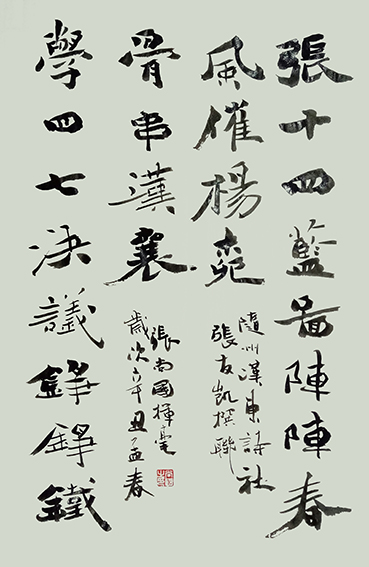 張十四藍啚陣陣春
風催楊
隨州漢東詩社
張友凱撰聯
骨串漢襄
張尚國揮毫
歲次辛丑孟春
學四七決議錚錚鐵